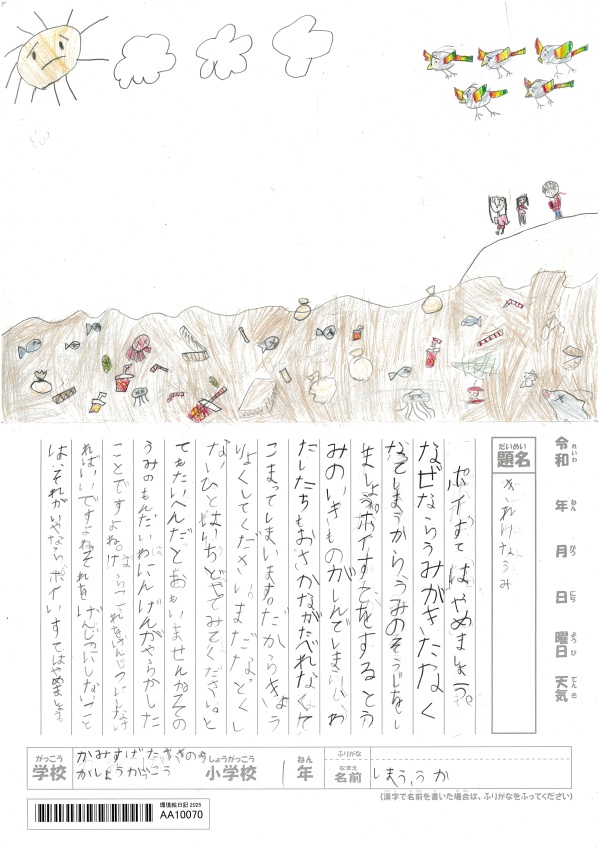 令和 れいわ
年 ねん
月 がつ
日 にち
曜日 ようび
天気 てんき
題名 だいめい
きれいなうみ
ポイすてはやめましょう。
なぜならうみがきたなく
なてしまうからうみのそうじをし
ましょうポイすてをするとう
みのいきものがしんでしまうしわ
たしたちもおさかながたべれなくて
こまってしまいます。だからきょう
りょくしてください。まだなとくし
ないひとはいちどやてみてください。と
てもたいへんだとおもいませんかその
うみのもんだいわにんげんがやらかした
ことですよね。
ればいいですよねそれをげんじつにしないこと
は、それがいやならポイすてはやめましょう。
学校 がっこう
かみすげだささのう
がしょうがっこう
小学校 しょうがっこう
1年 ねん
ふりがな
名前 なまえ
しまう,うか
(漢字で名前を書いた場合は、ふりがなをふってください)
環境絵日記 2025
AA10070